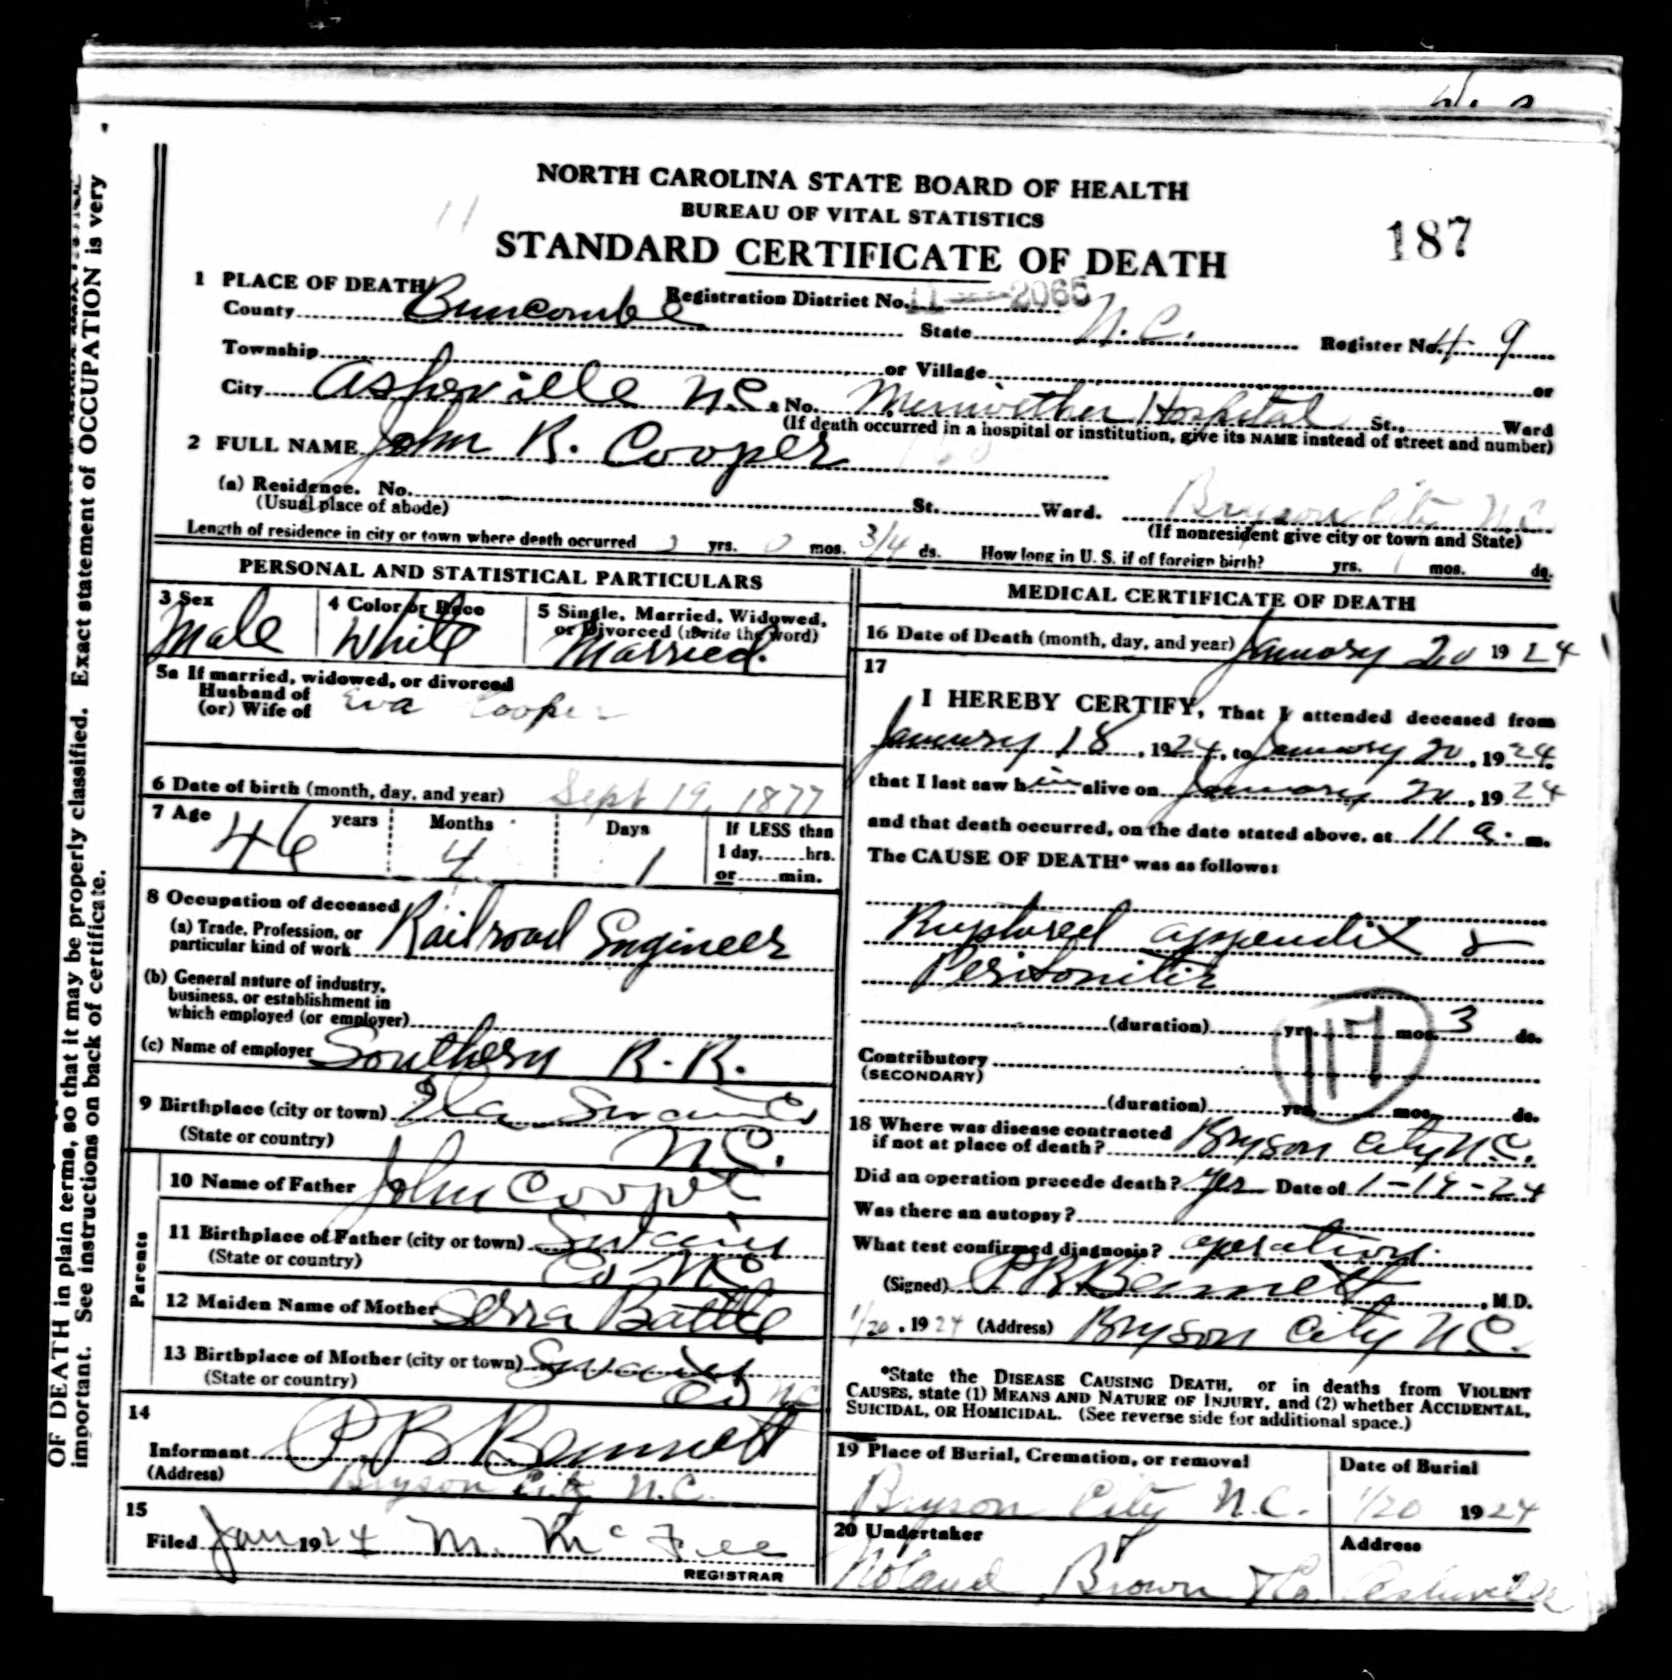 NORTH CAROLINA STATE BOARD OF HEALTH
BUREAU OF VITAL STATISTICS
STANDARD CERTIFICATE OF DEATH
187
11
1 PLACE OF DEATH
Registration District No. 11 2065
County Buncombe State N.C. Register No. 49
Township or Village or
City Asheville N.C. No. Meriwether Hospital St., Ward
(If death occurred in a hospital or institution, give its NAME instead of street and number)
2 FULL NAME John R. Cooper
(a) Residence. No. St. Ward. Bryson City N.C.
(Usual place of abode) (If nonresident give city or town and State)
Length of residence in city or town where death occurred yrs. 0 mos. 3/4 ds. How long in U. S. if of foreign birth? yrs. mos. ds.
PERSONAL AND STATISTICAL PARTICULARS
3 Sex Male
4 Color or Race White
5 Single, Married, Widowed, or Divorced (write the word) Married.
5a If married, widowed, or divorced
Husband of
(or) Wife of Eva Cooper
6 Date of birth (month, day, and year) Sept 19, 1877
7 Age years Months Days If LESS than
46 4 1 1 day, hrs.
or min.
8 Occupation of deceased
(a) Trade, Profession, or
particular kind of work Railroad Engineer
(b) General nature of industry,
business, or establishment in
which employed (or employer)
(c) Name of employer Southern R.R.
9 Birthplace (city or town) Ela Swain Co
(State or country) N.C.
Parents
10 Name of Father John Cooper
11 Birthplace of Father (city or town) Swain
(State or country) Co N.C.
12 Maiden Name of Mother Battle
13 Birthplace of Mother (city or town) Swain
(State or country) Co N.C.
14
Informant P.R. Bennett
(Address) Bryson City N.C.
15
Filed Jan 1924 M. McFee
REGISTRAR
MEDICAL CERTIFICATE OF DEATH
16 Date of Death (month, day, and year) January 20 1924
17
I HEREBY CERTIFY, That I attended deceased from
January 18, 1924, to January 20, 1924
that I last saw him alive on January 20, 1924
and that death occurred, on the date stated above, at 11 a. m.
The CAUSE OF DEATH* was as follows:
Ruptured appendix &
Peritonitis
(duration) yrs. mos. 3 ds.
117
Contributory
(SECONDARY)
(duration) yrs. mos. ds.
18 Where was disease contracted
if not at place of death? Bryson City N.C.
Did an operation precede death? Yes Date of 1-19-24
Was there an autopsy?
What test confirmed diagnosis? operation.
(Signed) P R Bennett, M.D.
1/20, 1924 (Address) Bryson City N.C.
*State the DISEASE CAUSING DEATH, or in deaths from VIOLENT
CAUSES, state (1) MEANS AND NATURE OF INJURY, and (2) whether ACCIDENTAL,
SUICIDAL, OR HOMICIDAL. (See reverse side for additional space.)
19 Place of Burial, Cremation, or removal Date of Burial
Bryson City N.C. 1/20 1924
20 Undertaker Address
Noland Brown & Co. Asheville
OF DEATH in plain terms, so that it may be properly classified. Exact statement of OCCUPATION is very
important. See instructions on back of certificate.